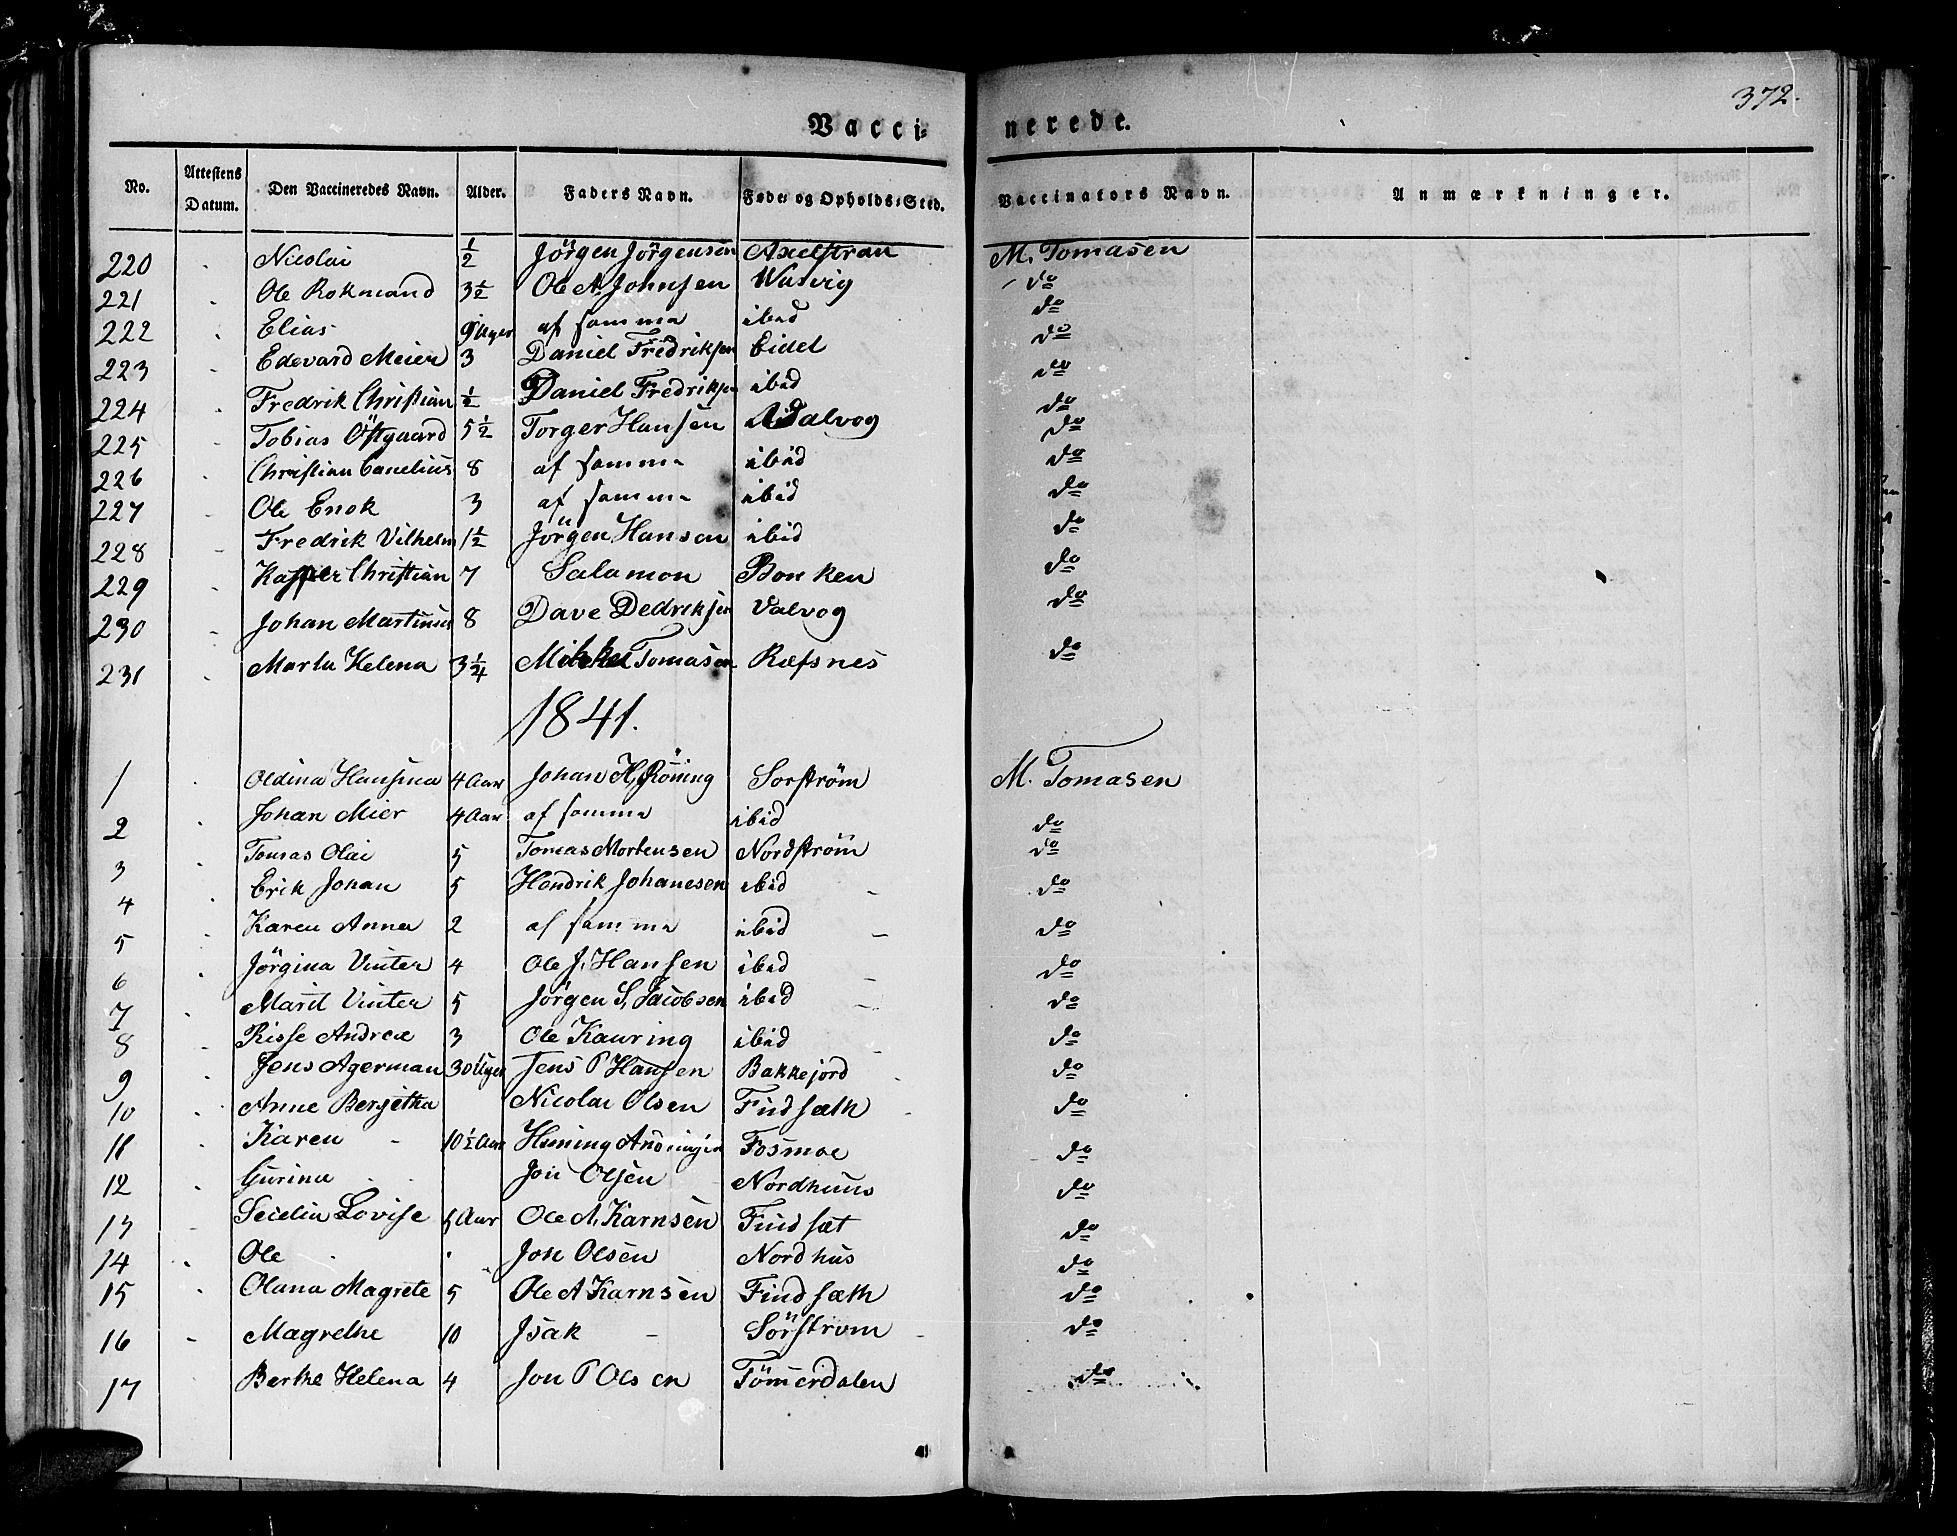 372.
Vacci-nerede.
No. Attestens Datum. Den Vaccineredes Navn. Alder. Faders Navn. Føde- og Opholds-Sted. Vaccinators Navn. Anmærkninger.
220 Nicolai ½ Jörgen Jörgensön Axelstran M. Tomasen
221 Ole Rokmand 3½ Ole A. Johnsen Wasvig do
222 Elias 9 Uger af samma ibid do
223 Edevard Meier 3 Daniel Fredriksen Eidet do
224 Fredrik Christian ½ Daniel Fredriksen ibid do
225 Tobias Östgaard 5½ Torger Hansen Valvog do
226 Christian Canelius 8 af samma ibid do
227 Ole Enok 3 af samma ibid do
228 Fredrik Vilhelm 1½ Jörgen Hansen ibid do
229 Kasper Christian 7 Salamon Bonken do
230 Johan Martinus 8 Dave Dedriksen Valvog do
231 Marta Helena 3¼ Mikkel Tomasen Ræfsnes do
1841.
1 Oldina Hansina 4 Aar Johan H. Röning Sorström M. Tomasen
2 Johan Mier 4 Aar af samma ibid do
3 Tomas Olai 5 Tomas Mortensen Nordström do
4 Erik Johan 5 Hendrik Johanesen ibid do
5 Karen Anna 2 af samma ibid do
6 Jörgina Vinter 4 Ole J. Hansen ibid do
7 Marit Vinter 5 Jörgen S. Jacobsen ibid do
8 Risse Andrea 3 Ole Kauring ibid do
9 Jens Agerman 30 Uger Jens P Hansen Bakkejord do
10 Anne Bergitha Nicolai Olsen Findsæth do
11 Karen 10½ Aar Huning Andningsen Fosmoe do
12 Gurina Jon Olsen Nordhuus do
13 Seielia Lovise 5 Aar Ole A. Karnsen Findsæt do
14 Ole Jon Olsen Nordhus do
15 Olana Magrete 5 Ole A Karnsen Findsæth do
16 Magrethe 10 Isak Sörstrom do
17 Berthe Helena 4 Jon P Olsen Tömerdalen do